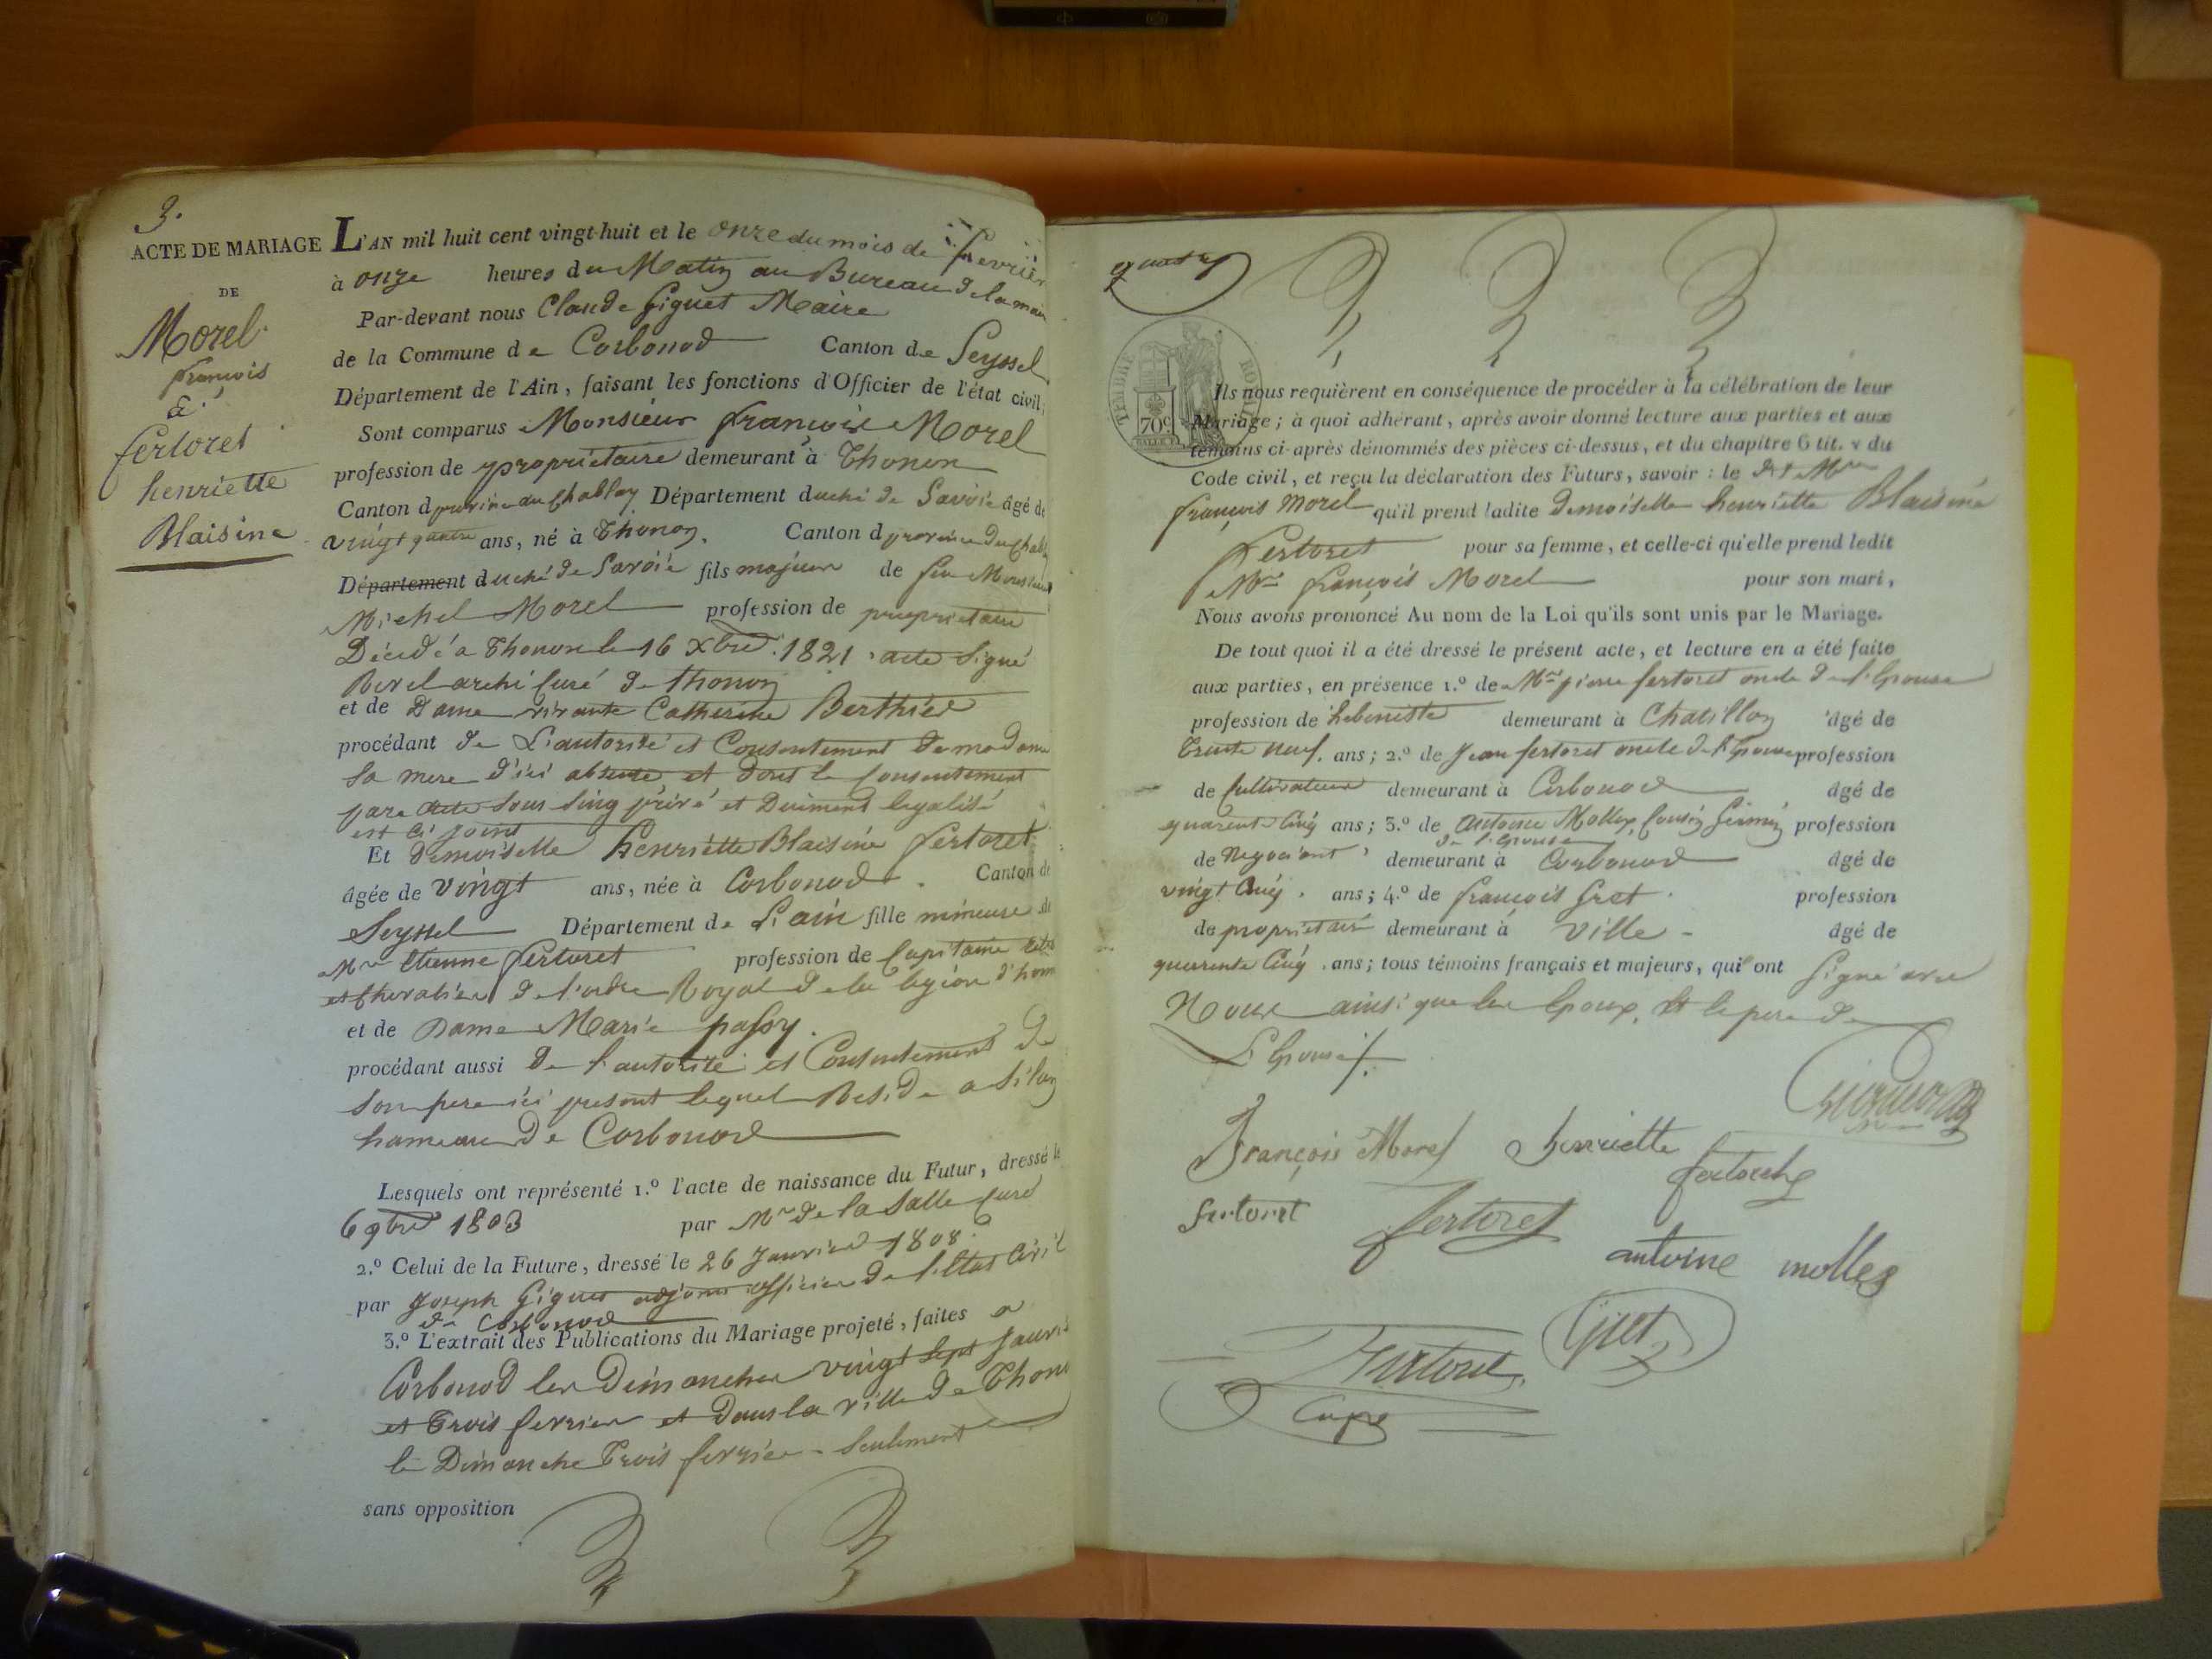 3.
ACTE DE MARIAGE
DE
Morel
françois
&
fertoret
henriette
Blaisine
L'AN mil huit cent vingt-huit et le onze du mois de fevrier
à onze heures du Matin au Bureau de la mai
Par-devant nous Claude Giguet Maire
de la Commune de Corbonod Canton de Seyssel
Département de l'Ain, faisant les fonctions d'Officier de l'état civil;
Sont comparus Monsieur françois Morel
profession de propriétaire demeurant à Thonon
Canton d province du Chablay Département duché de Savoie âgé de
vingt quatre ans, né à Thonon. Canton d province du Chabl
Département duché de Savoie fils majeur de feu Monsieur
Michel Morel profession de propriétaire
Décédé à Thonon le 16 Xbre 1821. acte signé
archi curé de thonon
et de Dame vivante Catherine Berthier
procédant de L'autorité et Consentement de madame
sa mere d'ici absente et dont le Consentement
par acte sous sing privé et Duiment legalisé
est ci joint
Et demoiselle henriette Blaisine fertoret
âgée de vingt ans, née à Corbonod. Canton de
Seyssel Département de L'ain fille mineure de
Mr etienne fertoret profession de Capitaine
et chevalier de l'ordre Royal de la legion d'hon
et de Dame Marie passy.
procédant aussi de l'autorité et Consentement de
son pere ici present lequel Reside a Silan
hameau de Corbonod
Lesquels ont représenté 1.º l'acte de naissance du Futur, dressé le
6 9bre 1803 par Mr de la Salle curé
2.º Celui de la Future, dressé le 26 Janvier 1808
par Joseph Giguet adjoint officier de l'Etat Civil
de Corbonod
3.º L'extrait des Publications du Mariage projeté, faites a
Corbonod les Dimanches vingt sept Janvi
et Trois fevrier et dans la ville de Thon
le Dimanche Trois fevrier seulement
sans opposition
TIMBRE ROYAL
70c
Ils nous requièrent en conséquence de procéder à la célébration de leur
Mariage; à quoi adhérant, après avoir donné lecture aux parties et aux
témoins ci-après dénommés des pièces ci-dessus, et du chapitre 6 tit. v du
Code civil, et reçu la déclaration des Futurs, savoir: le dt Mr
françois Morel qu'il prend ladite demoiselle henriette Blaisine
fertoret pour sa femme, et celle-ci qu'elle prend ledit
Mr françois Morel pour son mari,
Nous avons prononcé Au nom de la Loi qu'ils sont unis par le Mariage.
De tout quoi il a été dressé le présent acte, et lecture en a été faite
aux parties, en présence 1.º de Mr pierre fertoret oncle de l'Epouse
profession de hebeniste demeurant à Chatillon âgé de
Trente neuf. ans; 2.º de Jean fertoret oncle de l'Epouse profession
de Cultivateur demeurant à Corbonod âgé de
quarente Cinq ans; 3.º de Antoine Mollex Cousin Germin profession
de l'Epouse
de Negociant demeurant à Corbonod âgé de
vingt Cinq. ans; 4.º de françois Gret. profession
de propriétaire demeurant à ville âgé de
quarente Cinq. ans; tous témoins français et majeurs, qui ont Signé avec
Nous ainsi que les Epoux. Et le pere de
L'Epouse
François Morel henriette
fertoret
fertoret fertoret
antoine mollex
Gret
fertoret